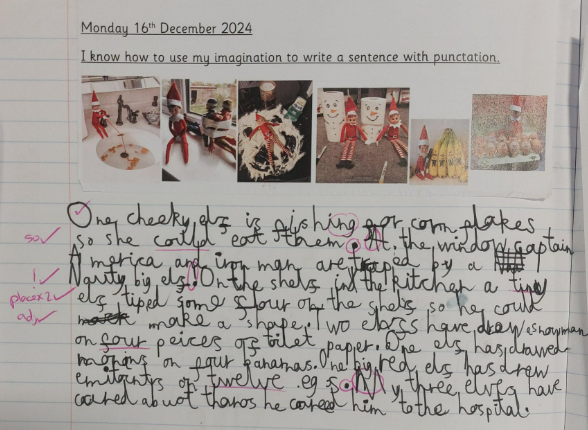 Monday 16th December 2024
I know how to use my imagination to write a sentence with punctation.
One cheeky elf is fishing for corn flakes
so she could eat them. At the window captain
so
America and iron man are traped by a
!
Naughty big elf! On the shelf in the kitchen a tiny
place x2
elf tiped some flour on the shelf so he could
ad
make a shape. Two elfs have draw a snowman
on four peices of toilet paper. One elf has drawed
on four bananas. One big red elf has drew
on twelve eggs. My three elves have
he carred him to the hospital.